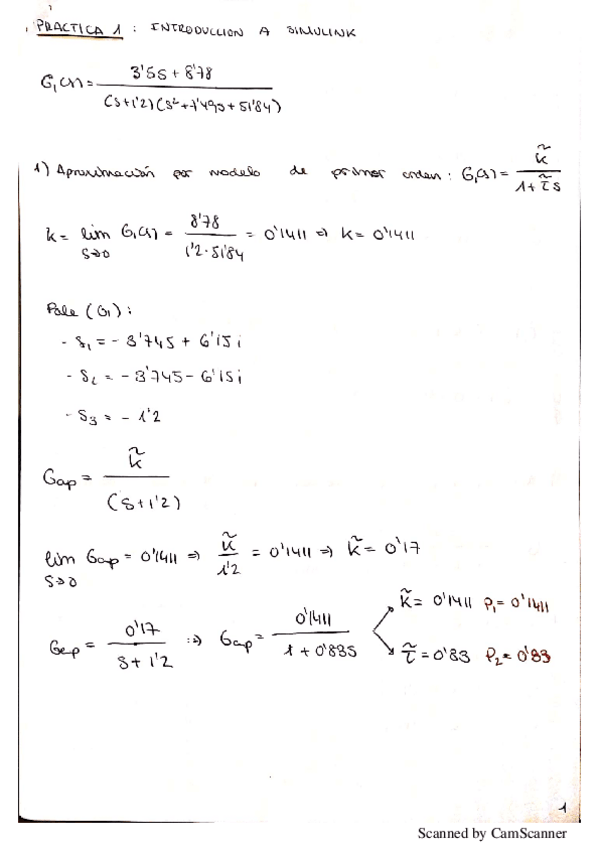 PRACTICA 1 : INTRODUCCION A SIMULINK
G₁(s) = 3'5s + 8'78 / (s+1'2)(s²+7'49s+51'84)
1) Aproximación por modelo de primer orden : G₁(s) = k̃ / 1+τ̃s
k = lim s→0 G₁(s) = 8'78 / 1'2·51'84 = 0'1411 ⇒ k = 0'1411
Pole (G₁) :
- s₁ = -3'745 + 6'15i
- s₂ = -3'745 - 6'15i
- s₃ = -1'2
Gap = k̃ / (s+1'2)
lim s→0 Gap = 0'1411 ⇒ k̃ / 1'2 = 0'1411 ⇒ k̃ = 0'17
Gap = 0'17 / s+1'2 ⇒ Gap = 0'1411 / 1+0'83s
k̃ = 0'1411 P₁ = 0'1411
τ̃ = 0'83 P₂ = 0'83
1
Scanned by CamScanner